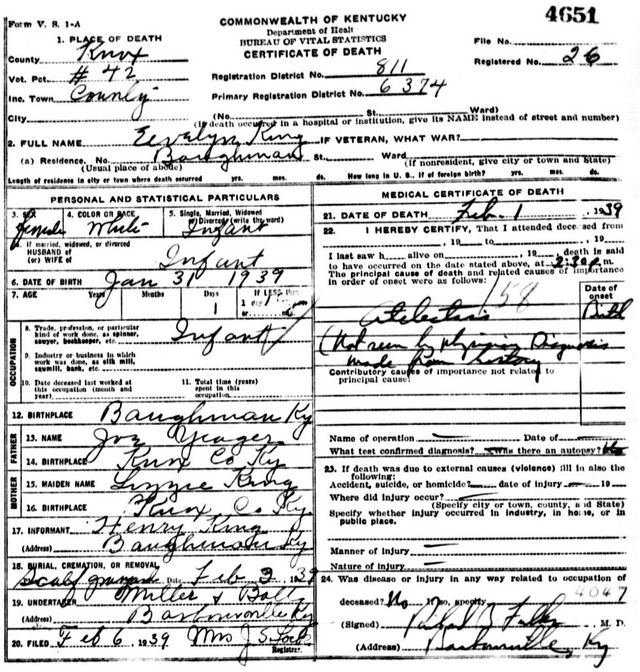 Form V. S. 1-A
COMMONWEALTH OF KENTUCKY
4651
Department of Healt
BUREAU OF VITAL STATISTICS
CERTIFICATE OF DEATH
1. PLACE OF DEATH
County Knox
Vot. Pct. # 42
Inc. Town County
City
File No.
Registered No. 26
Registration District No. 811
Primary Registration District No. 6374
(No. St. Ward)
(If death occurred in a hospital or institution, give its NAME instead of street and number)
2. FULL NAME Eevalyn King IF VETERAN, WHAT WAR?
(a) Residence. No. Baughman St. Ward
(Usual place of abode) (If nonresident, give city or town and State)
Length of residence in city or town where death occurred yrs. mos. ds. How long in U. S., if of foreign birth? yrs. mos. ds.
PERSONAL AND STATISTICAL PARTICULARS
3. SEX Female
4. COLOR OR RACE White
5. Single, Married, Widowed or Divorced (write the word) Infant
If married, widowed, or divorced
HUSBAND of
(or) WIFE of Infant
6. DATE OF BIRTH Jan 31 1939
7. AGE Years Months Days 1 If LESS than 1 day
OCCUPATION
8. Trade, profession, or particular kind of work done, as spinner, sawyer, bookkeeper, etc. Infant
9. Industry or business in which work was done, as silk mill, sawmill, bank, etc.
10. Date deceased last worked at this occupation (month and year)
11. Total time (years) spent in this occupation
12. BIRTHPLACE Baughman Ky
FATHER
13. NAME Joe Yeager
14. BIRTHPLACE Knox Co Ky
MOTHER
15. MAIDEN NAME Lizzie King
16. BIRTHPLACE Knox Co Ky.
17. INFORMANT Henry King
(Address) Baughman Ky
18. BURIAL, CREMATION, OR REMOVAL
Scalf graveyard Date Feb 3 1939
19. UNDERTAKER Miller &
(Address) Barbourville Ky
20. FILED Feb 6, 1939 Mrs J. S.
Registrar.
MEDICAL CERTIFICATE OF DEATH
21. DATE OF DEATH Feb. 1 1939
22. I HEREBY CERTIFY, That I attended deceased from
, 19 to , 19
I last saw h alive on , 19 death is said
to have occurred on the date stated above, at 2:30 m.
The principal cause of death and related causes of importance
in order of onset were as follows:
Date of onset
158
Atelectasis Birth
(Not seen by physician Diagnosis
made from history
Contributory causes of importance not related to
principal cause:
Name of operation Date of
What test confirmed diagnosis? Was there an autopsy? No
23. If death was due to external causes (violence) fill in also the
following:
Accident, suicide, or homicide? date of injury 19
Where did injury occur?
(Specify city or town, county, and State)
Specify whether injury occurred in industry, in home, or in
public place.
Manner of injury
Nature of injury
24. Was disease or injury in any way related to occupation of
deceased? No If so, specify 4047
(Signed) M. D.
(Address) Barbourville, Ky